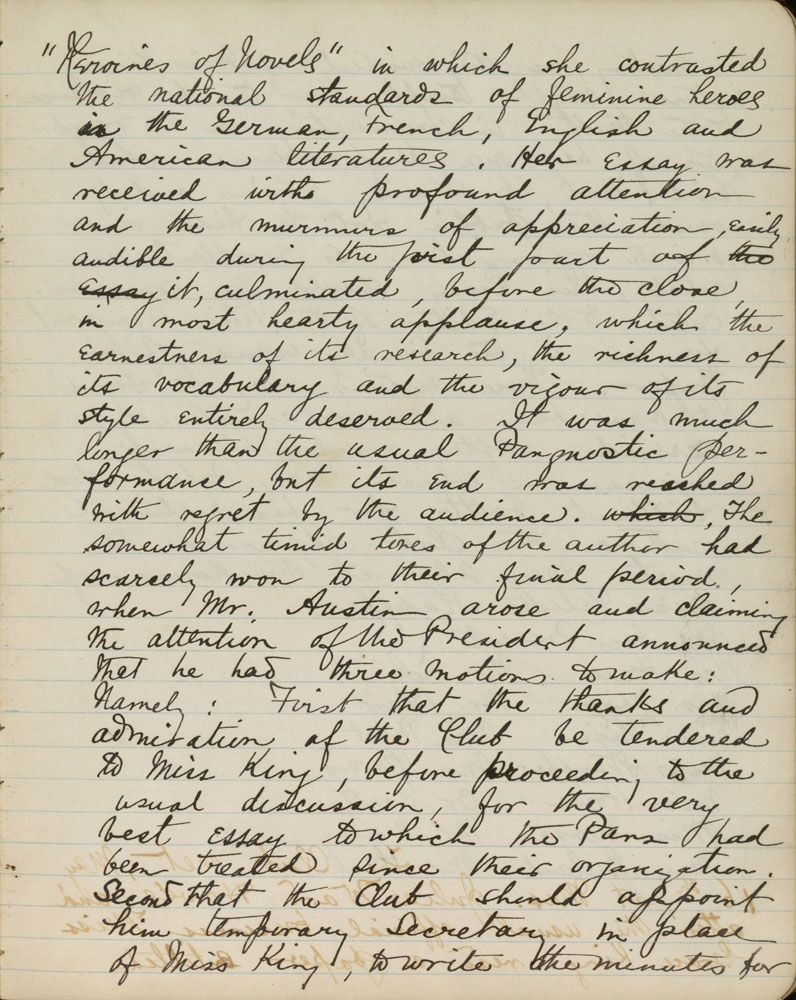 "Heroines of Novels" in which she contrasted
the national standards of feminine heroes
in the German, French, English and
American literatures. Her essay was
received with profound attention
and the murmurs of appreciation, easily
audible during the first part of the
essay it, culminated, before the close,
in most hearty applause, which the
earnestness of its research, the richness of
its vocabulary and the vigour of its
style entirely deserved. It was much
longer than the usual Pangnostic per-
formance, but its end was reached
with regret by the audience. which, The
somewhat timid tones of the author had
scarcely won to their final period,
when Mr. Austin arose and claiming
the attention of the President announced
that he had three motions to make:
Namely: First that the thanks and
admiration of the Club be tendered
to Miss King, before proceeding to the
usual discussion, for the very
best essay to which the Pans had
been treated since their organization.
Second that the Club should appoint
him temporary Secretary in place
of Miss King, to write the minutes for